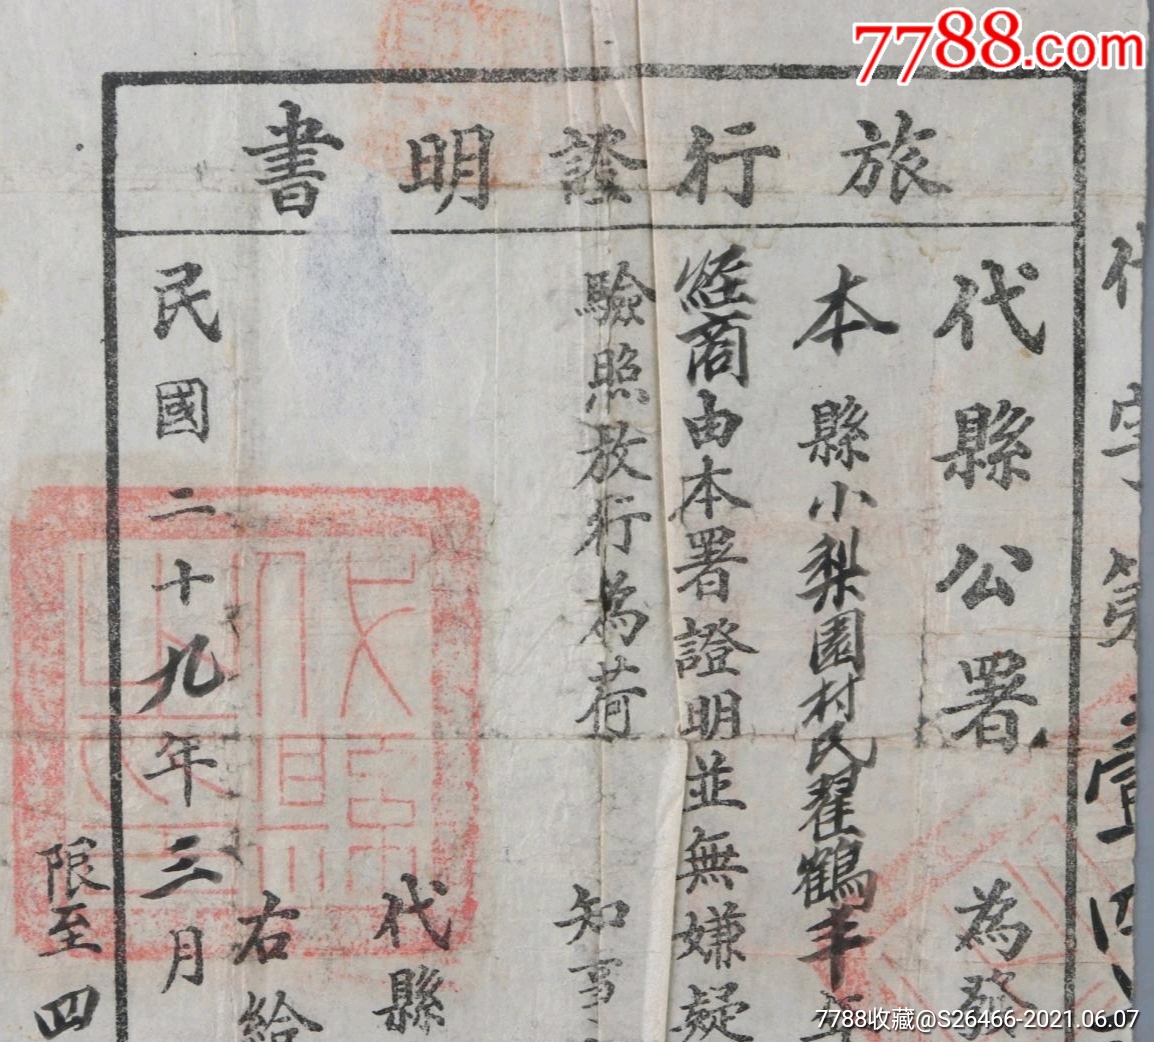 7788.com
旅行證明書
代字第壹四
代縣公署為發
本縣小梨園村民翟鶴年
經商由本署證明並無嫌疑
驗照放行為荷
知事
代縣
右給
民國二十九年三月
限至四
7788收藏@S26466-2021.06.07